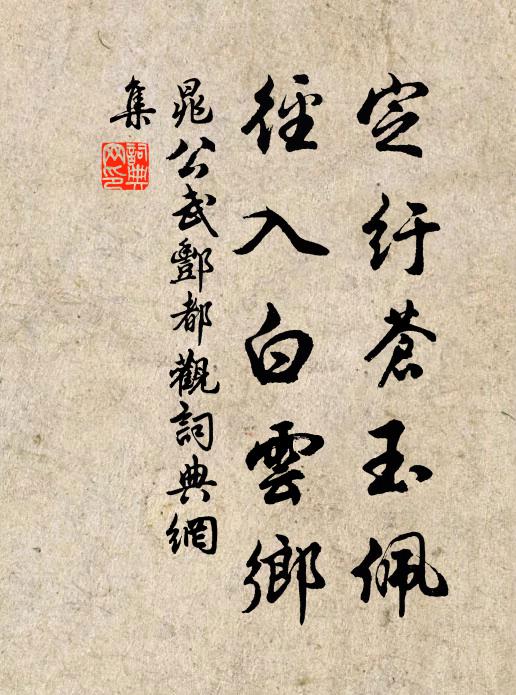 定紆蒼玉佩
徑入白雲鄉
晁公武酆都觀詞典網
集
詞典
網印